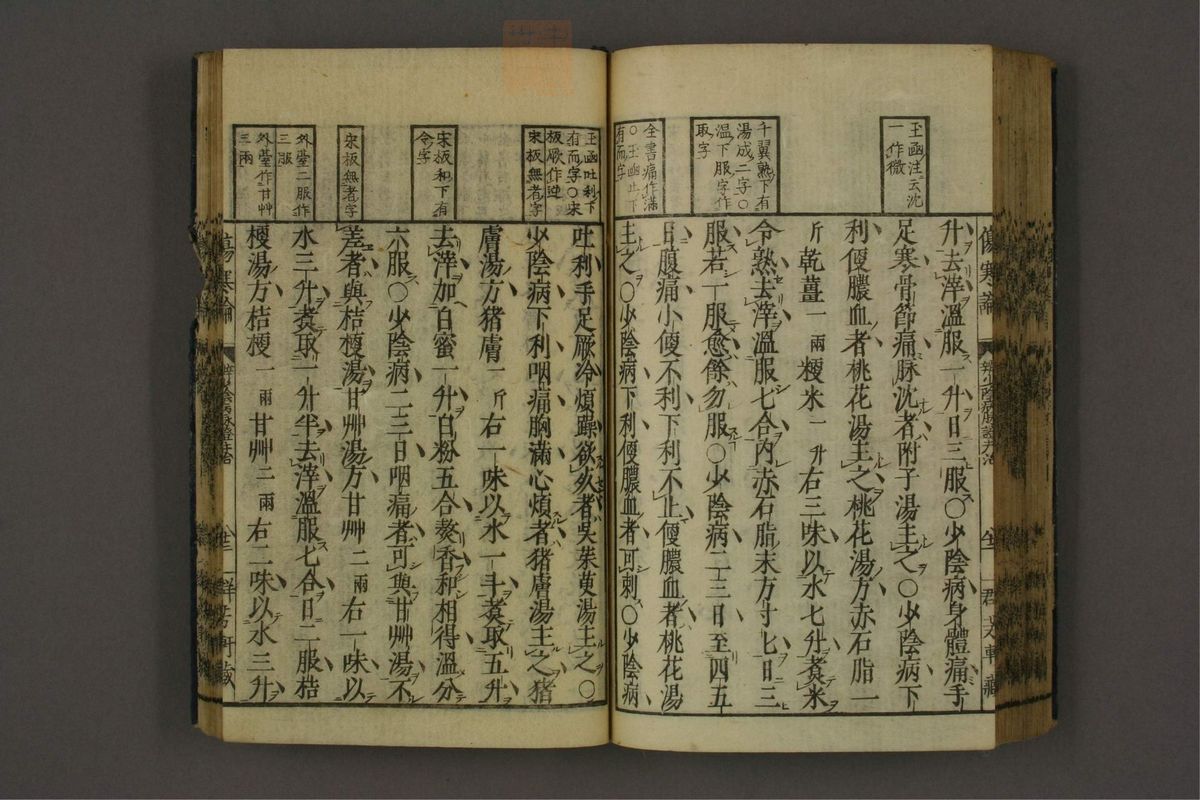 玉函注云沈
一作微
千翼熟下有
湯成二字〇
溫下服字作
取字
全書痛作滿
〇玉函止下
有而字
傷寒論
升去滓溫服一升日三服〇少陰病身體痛手
足寒骨節痛脉沈者附子湯主之〇少陰病下
利便膿血者桃花湯主之桃花湯方赤石脂一
斤乾薑一兩粳米一升右三味以水七升煑米
令熟去滓溫服七合內赤石脂末方寸匕日三
服若一服愈餘勿服〇少陰病二三日至四五
日腹痛小便不利下利不止便膿血者桃花湯
主之〇少陰病下利便膿血者可刺〇少陰病
玉函吐利下
有而字〇宋
板厥作逆
宋板無者字
宋板和下有
令字
宋板無者字
外臺二服作
三服
外臺作甘艸
三兩
吐利手足厥冷煩躁欲死者吳茱萸湯主之〇
少陰病下利咽痛胸滿心煩者猪膚湯主之猪
膚湯方猪膚一斤右一味以水一斗煑取五升
去滓加白蜜一升白粉五合熬香和相得溫分
六服〇少陰病二三日咽痛者可與甘艸湯不
差者與桔梗湯甘艸湯方甘艸二兩右一味以
水三升煑取一升半去滓溫服七合日二服桔
梗湯方桔梗一兩甘艸二兩右二味以水三升
傷寒論